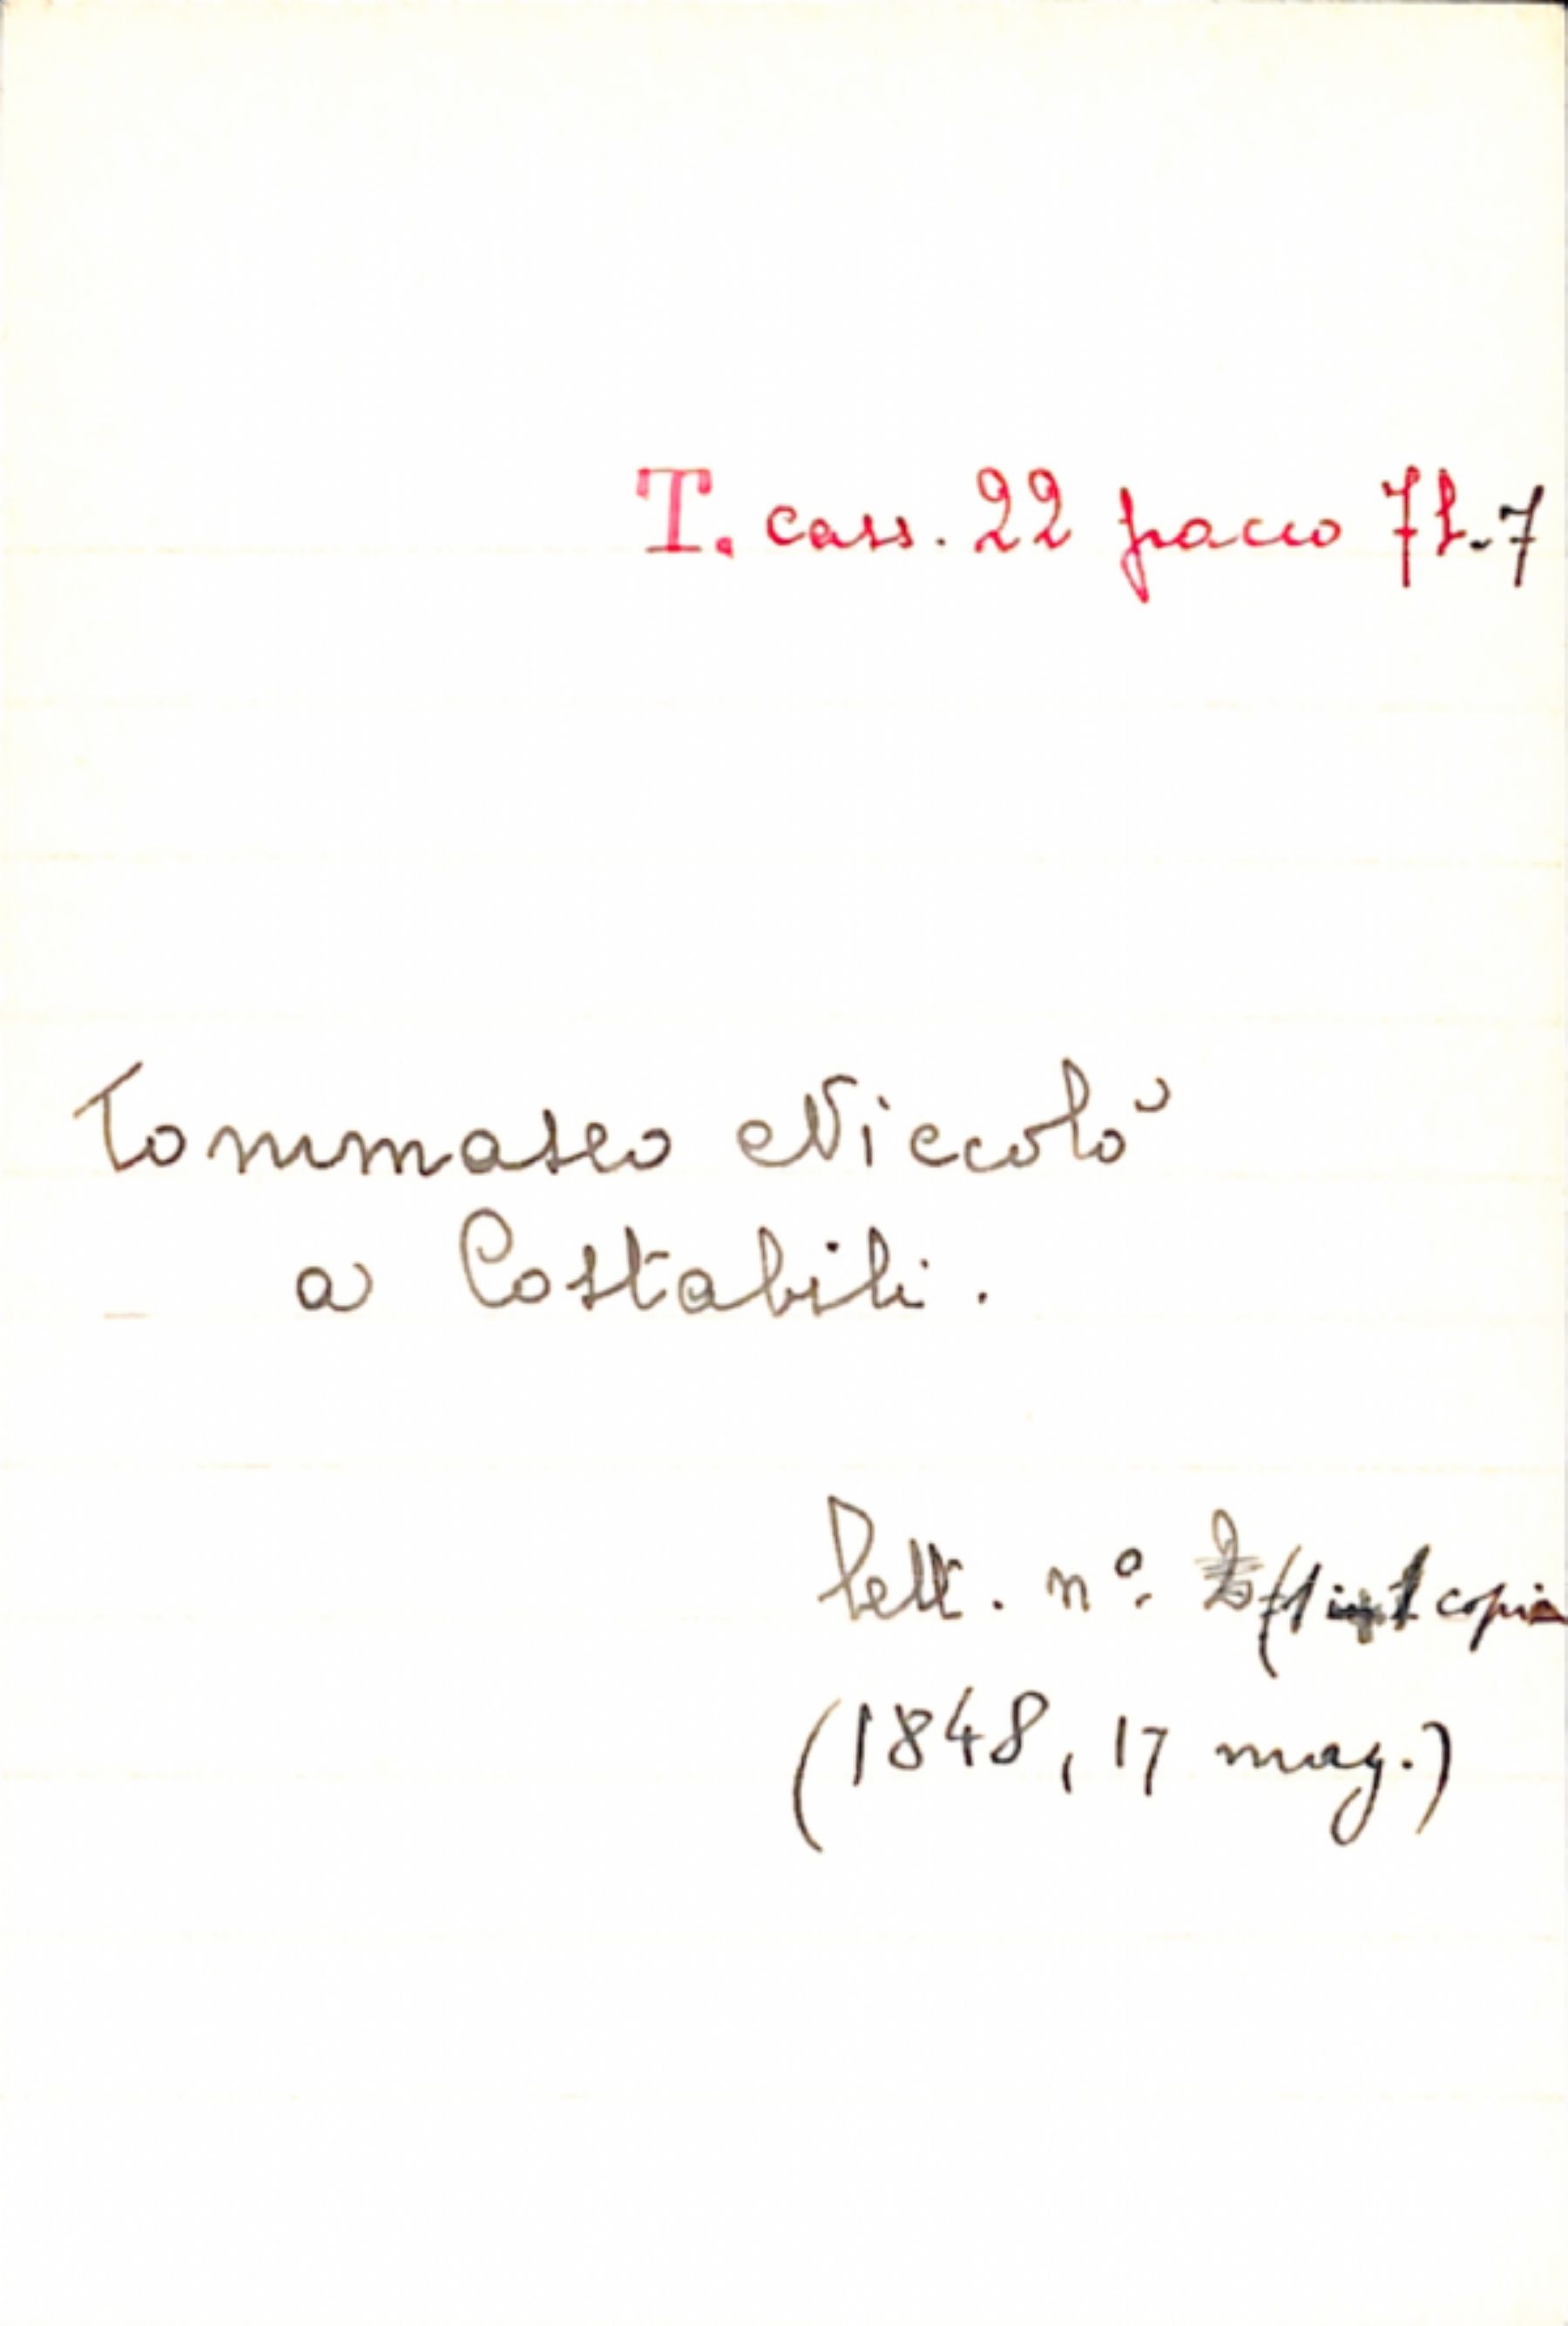 T. cass. 22 pacco 71.7
Tommaseo Niccolò
a Costabili.
Lett. n°. (1 in 1 copia
(1848, 17 mag.)